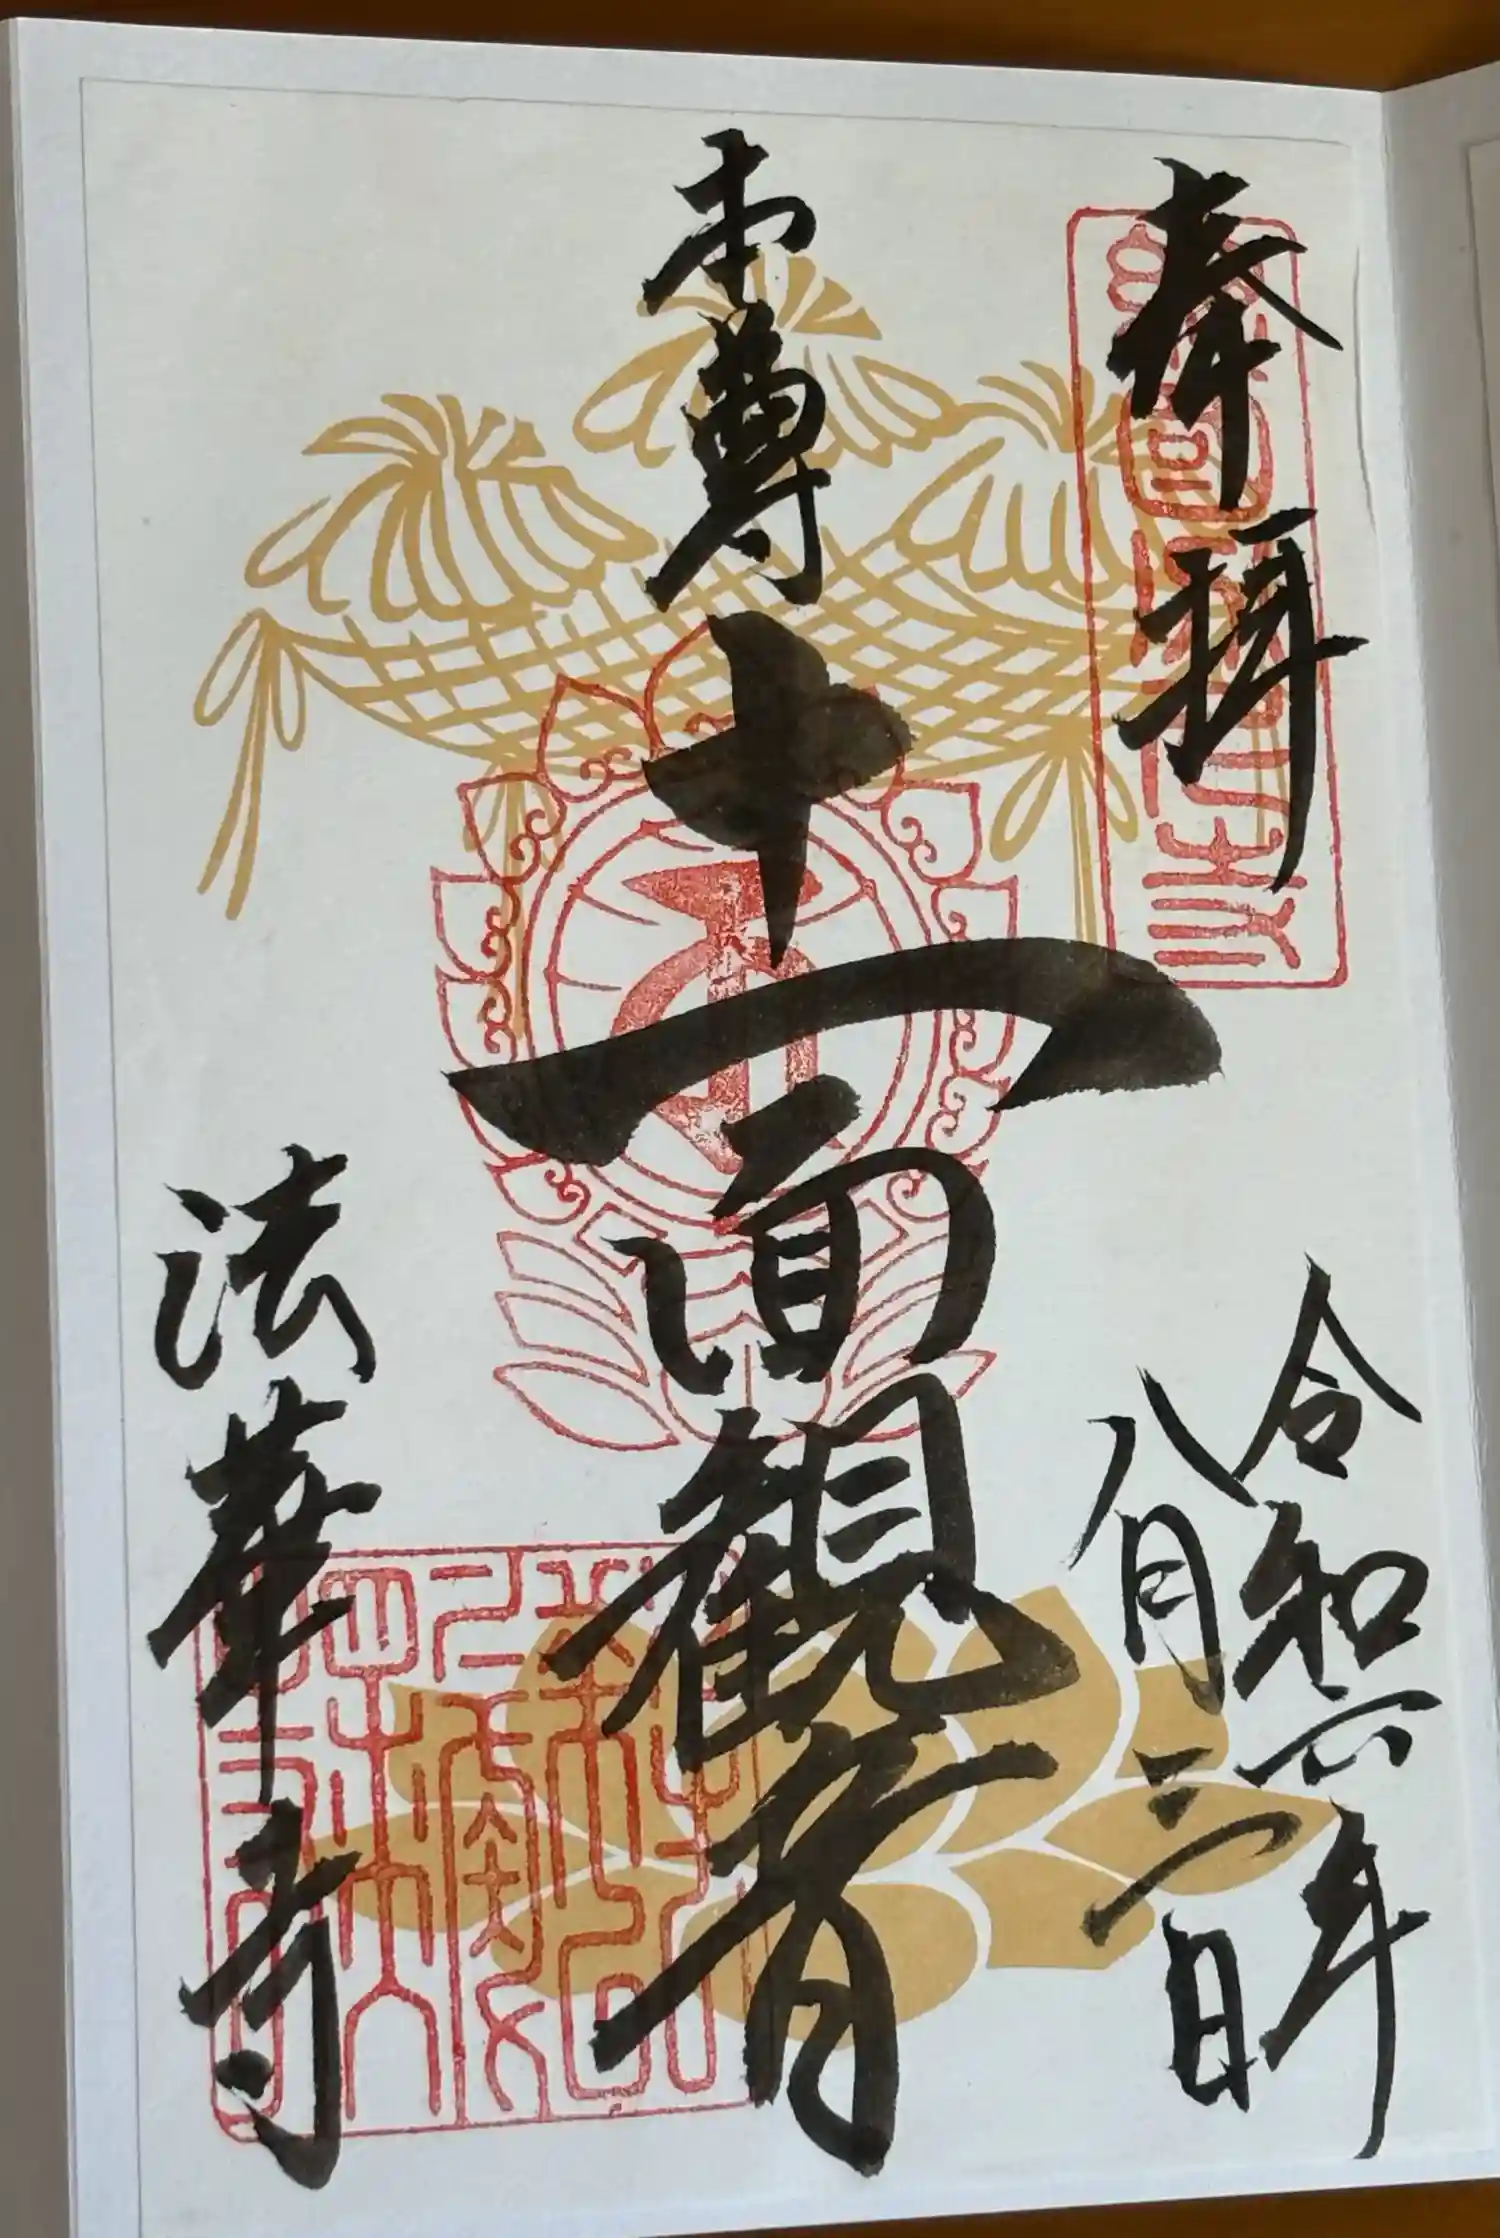 奉拝
令和六年
八月二日
本尊十一面観音
法華寺